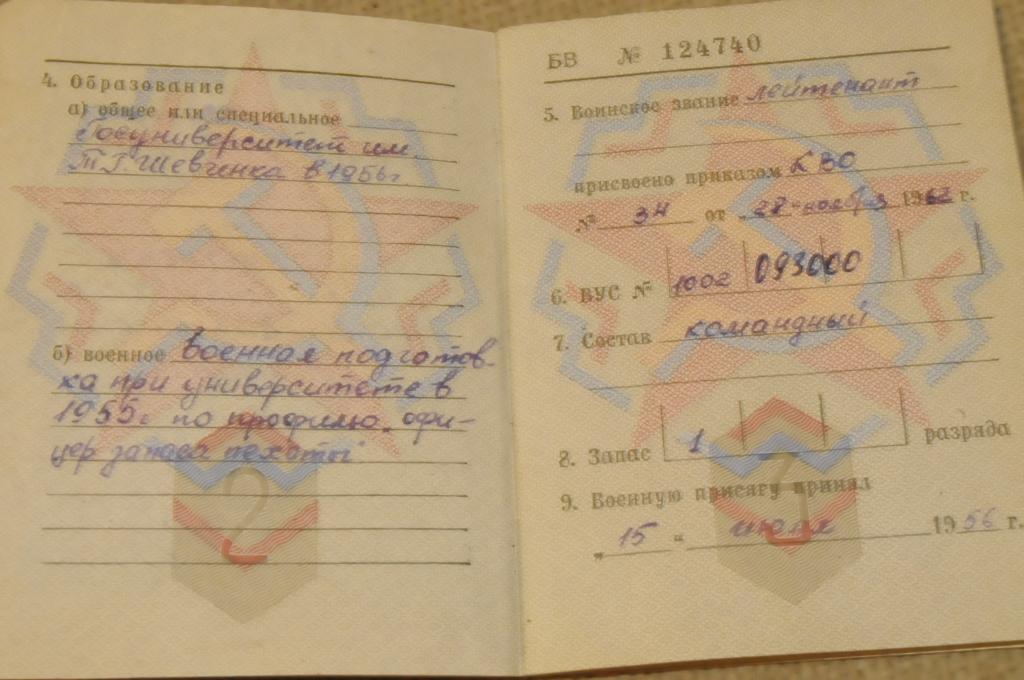 4. Образование
а) общее или специальное
Госуниверситет им.
Т.Г. Шевченка в 1956 г.
б) военное Военная подготов-
ка при университете в
1955 г. по профилю офи-
цер запаса пехоты
2
БВ № 124740
5. Воинское звание лейтенант
присвоено приказом КВО
№ 34 от "28" ноября 1962 г.
6. ВУС № 1002 093000
7. Состав командный
8. Запас 1 разряда
9. Военную присягу принял
"15" июля 1956 г.
3